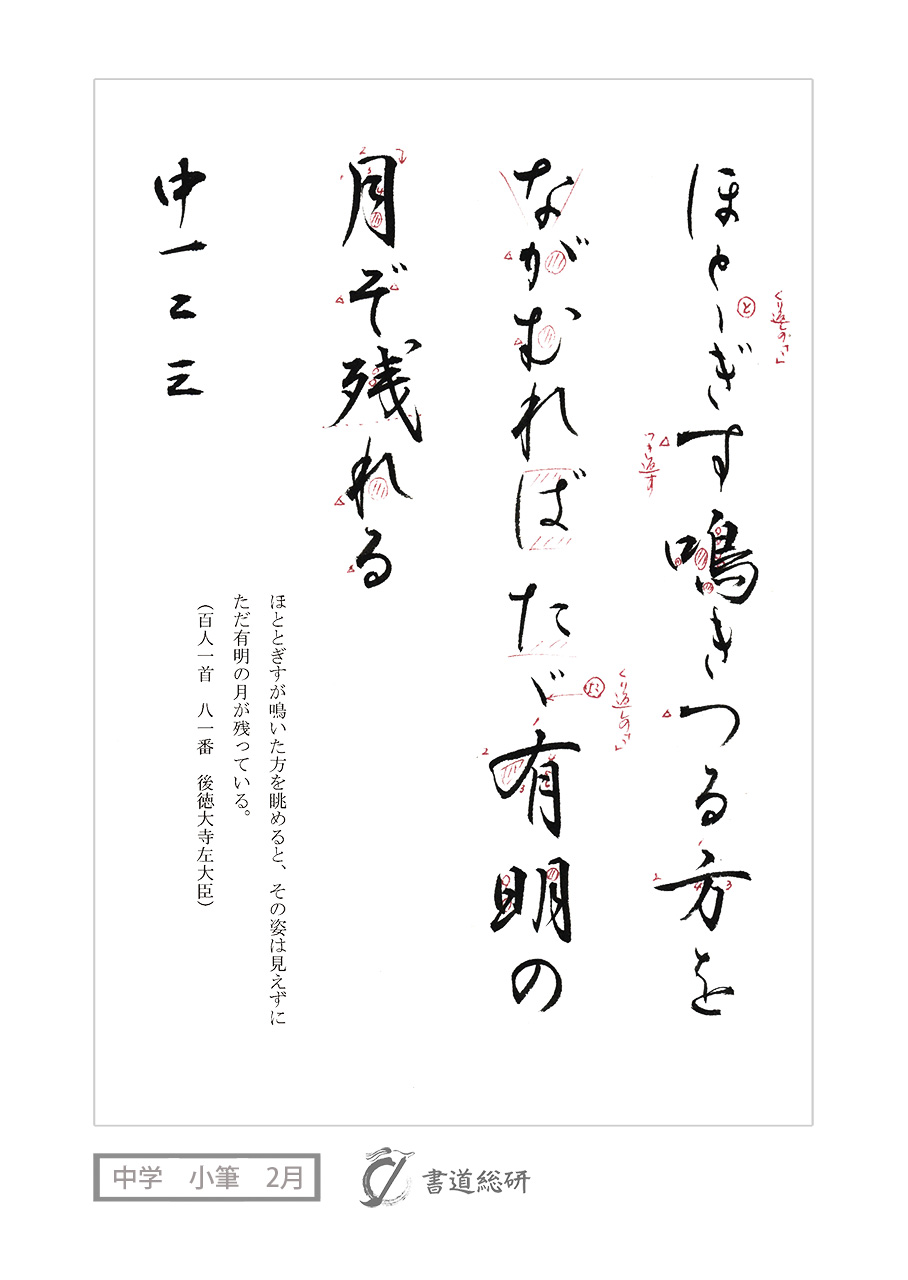 ほとゝぎす鳴きつる方を
ながむればたゞ有明の
月ぞ残れる
中一二三
くり返しの「ゝ」
と
つき返す
くり返しの「ゞ」
だ
ほととぎすが鳴いた方を眺めると、その姿は見えずに
ただ有明の月が残っている。
(百人一首 八一番 後徳大寺左大臣)
中学 小筆 2月
書道総研